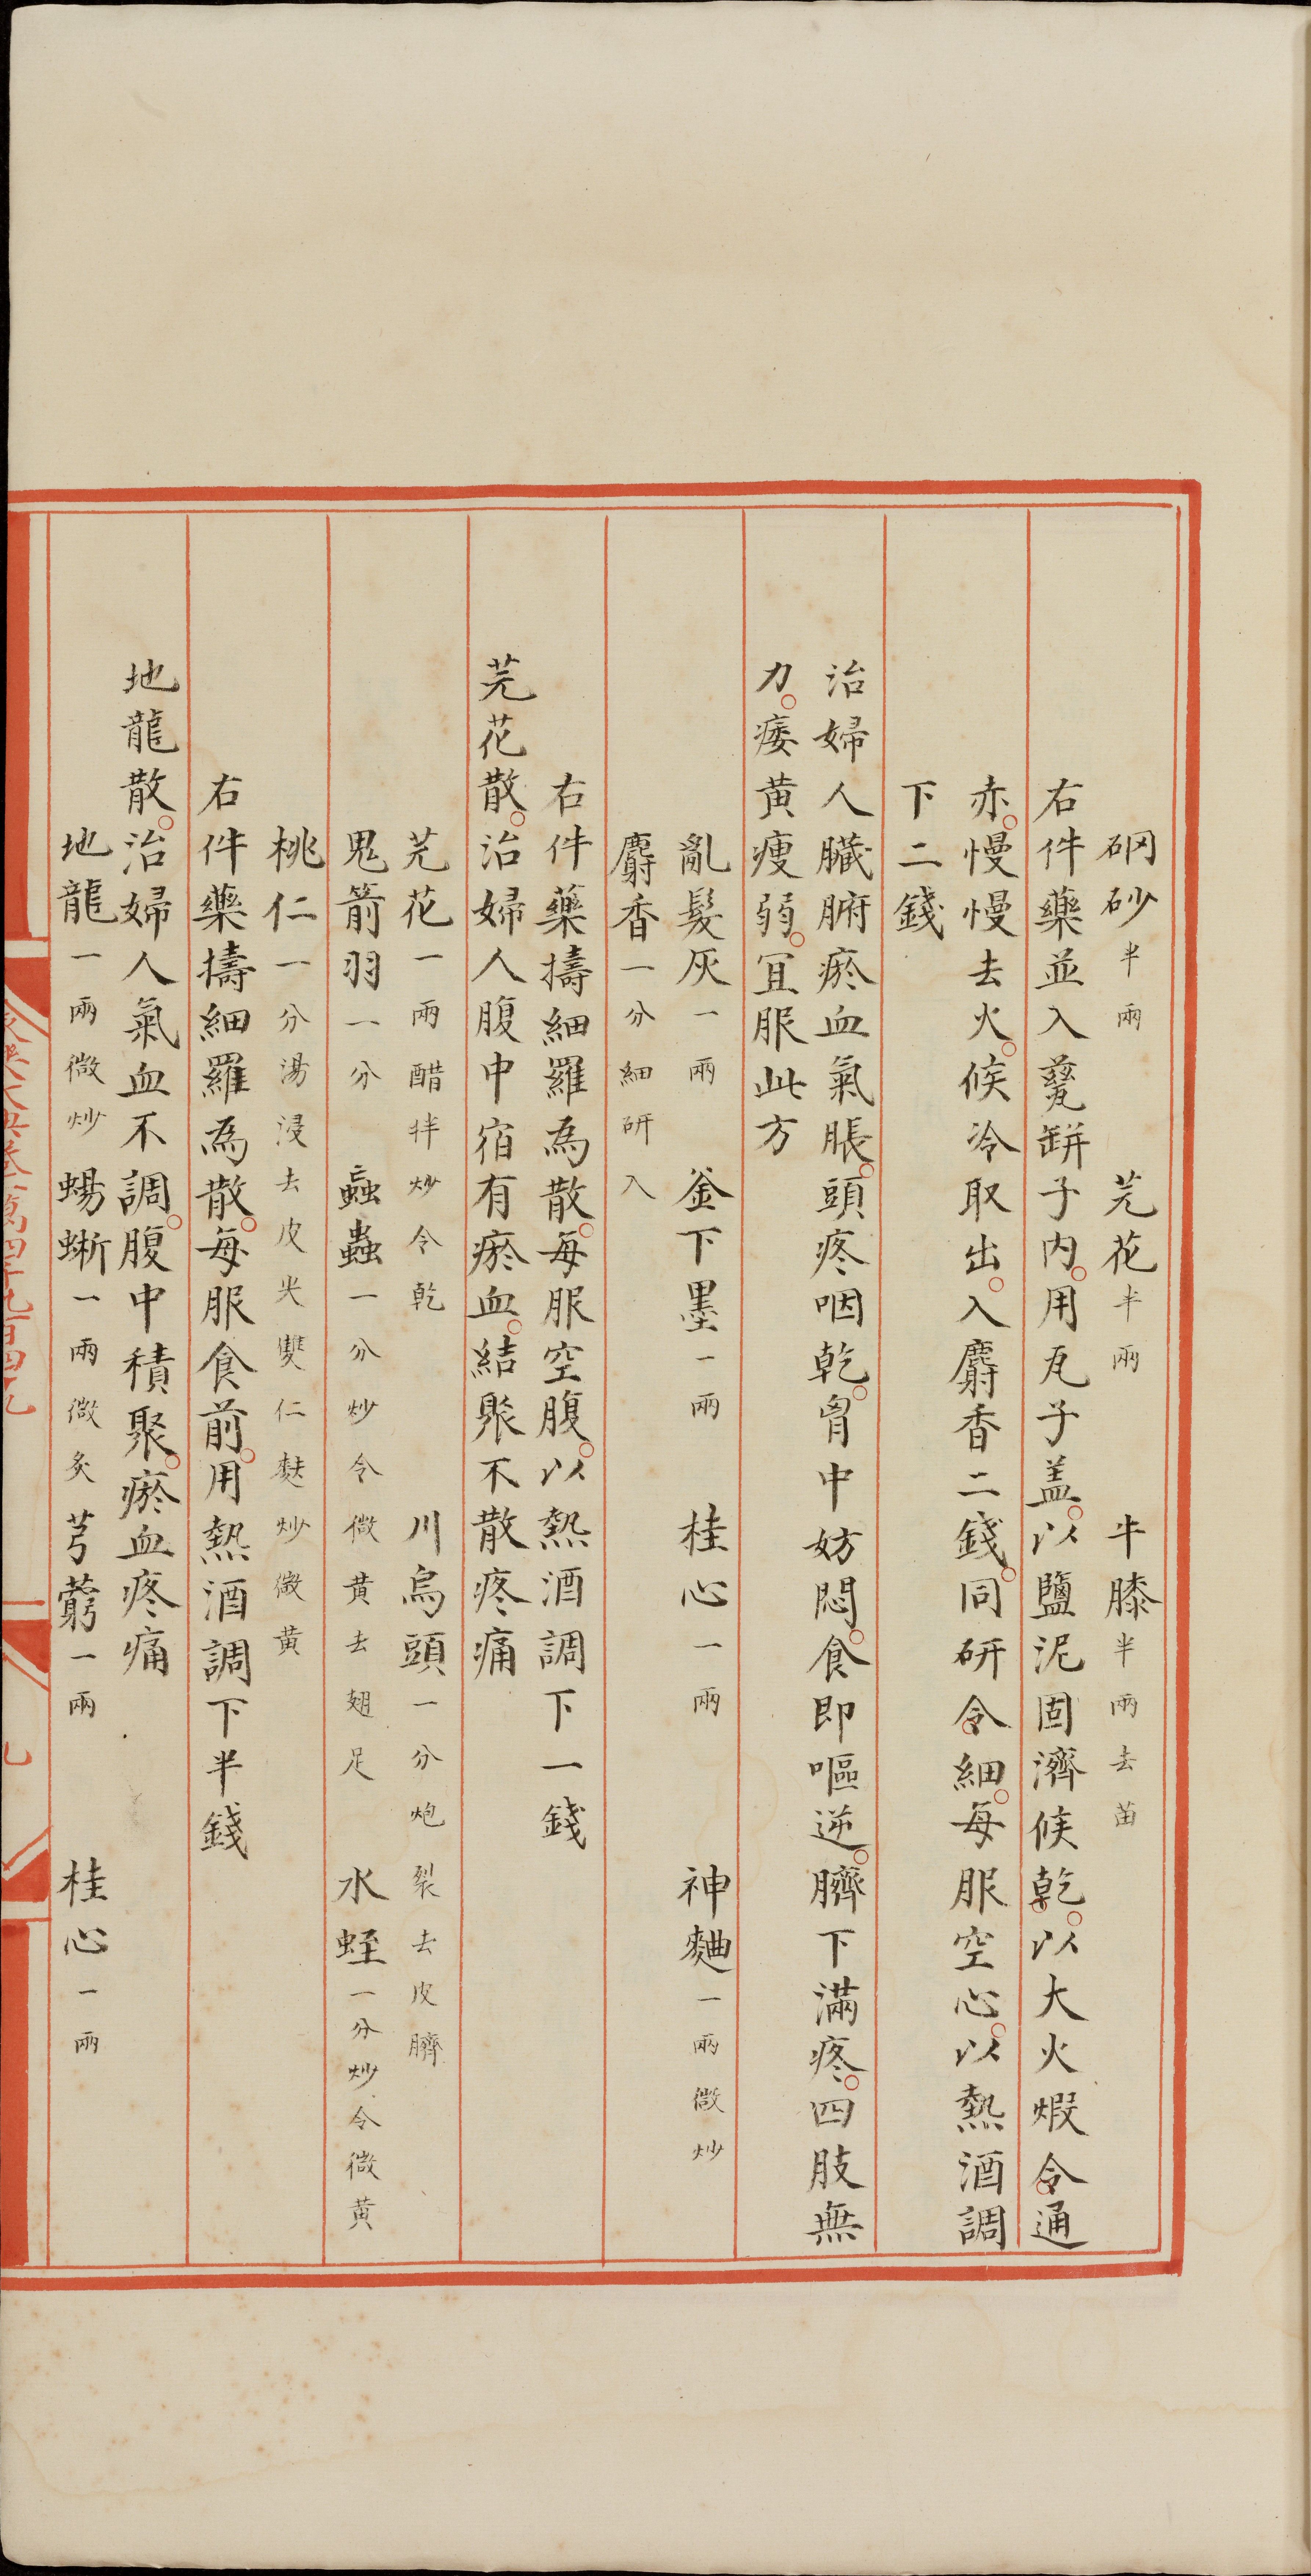 硇砂半兩　芫花半兩　牛膝半兩去苗
右件藥並入甆缾子内。用瓦子盖。以鹽泥固濟候乾。以大火煅令通
赤。慢慢去火。候冷取出。入麝香二錢。同研令細。每服空心。以熱酒調
下二錢
治婦人臟腑瘀血氣脹。頭疼咽乾。胷中妨悶。食即嘔逆。臍下滿疼。四肢無
力。痿黄瘦弱。冝服此方
亂髮灰一兩　釜下墨一兩　桂心一兩　神麯一兩微炒
麝香一分細研入
右件藥擣細羅為散。每服空腹。以熱酒調下一錢
芫花散。治婦人腹中宿有瘀血。結聚不散疼痛
芫花一兩醋拌炒令乾　川烏頭一分炮裂去皮臍
鬼箭羽一分　蝱蟲一分炒令微黄去翅足　水蛭一分炒令微黄
桃仁一分湯浸去皮尖雙仁麩炒微黄
右件藥擣細羅為散。每服食前。用熱酒調下半錢
地龍散。治婦人氣血不調。腹中積聚。瘀血疼痛
地龍一兩微炒　蜴蜥一兩微炙　芎藭一兩　桂心一兩